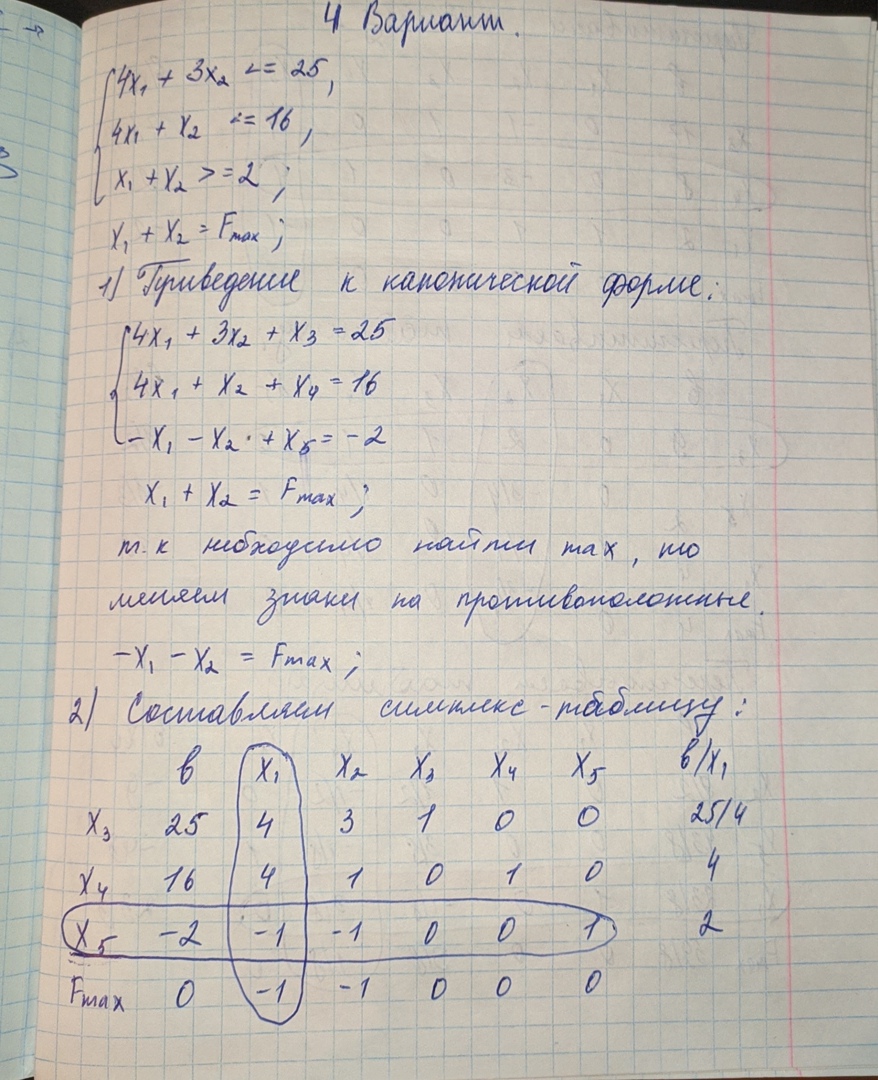 4 Вариант.
4x₁ + 3x₂ <= 25,
4x₁ + x₂ <= 16,
x₁ + x₂ >= 2;
x₁ + x₂ = Fmax;
1) Приведение к канонической форме:
4x₁ + 3x₂ + x₃ = 25
4x₁ + x₂ + x₄ = 16
-x₁ - x₂ + x₅ = -2
x₁ + x₂ = Fmax;
т.к необходимо найти max, то
меняем знаки на противоположные.
-x₁ - x₂ = Fmax;
2) Составляем симплекс-таблицу:
в x₁ x₂ x₃ x₄ x₅ в/x₁
x₃ 25 4 3 1 0 0 25/4
x₄ 16 4 1 0 1 0 4
x₅ -2 -1 -1 0 0 1 2
Fmax 0 -1 -1 0 0 0